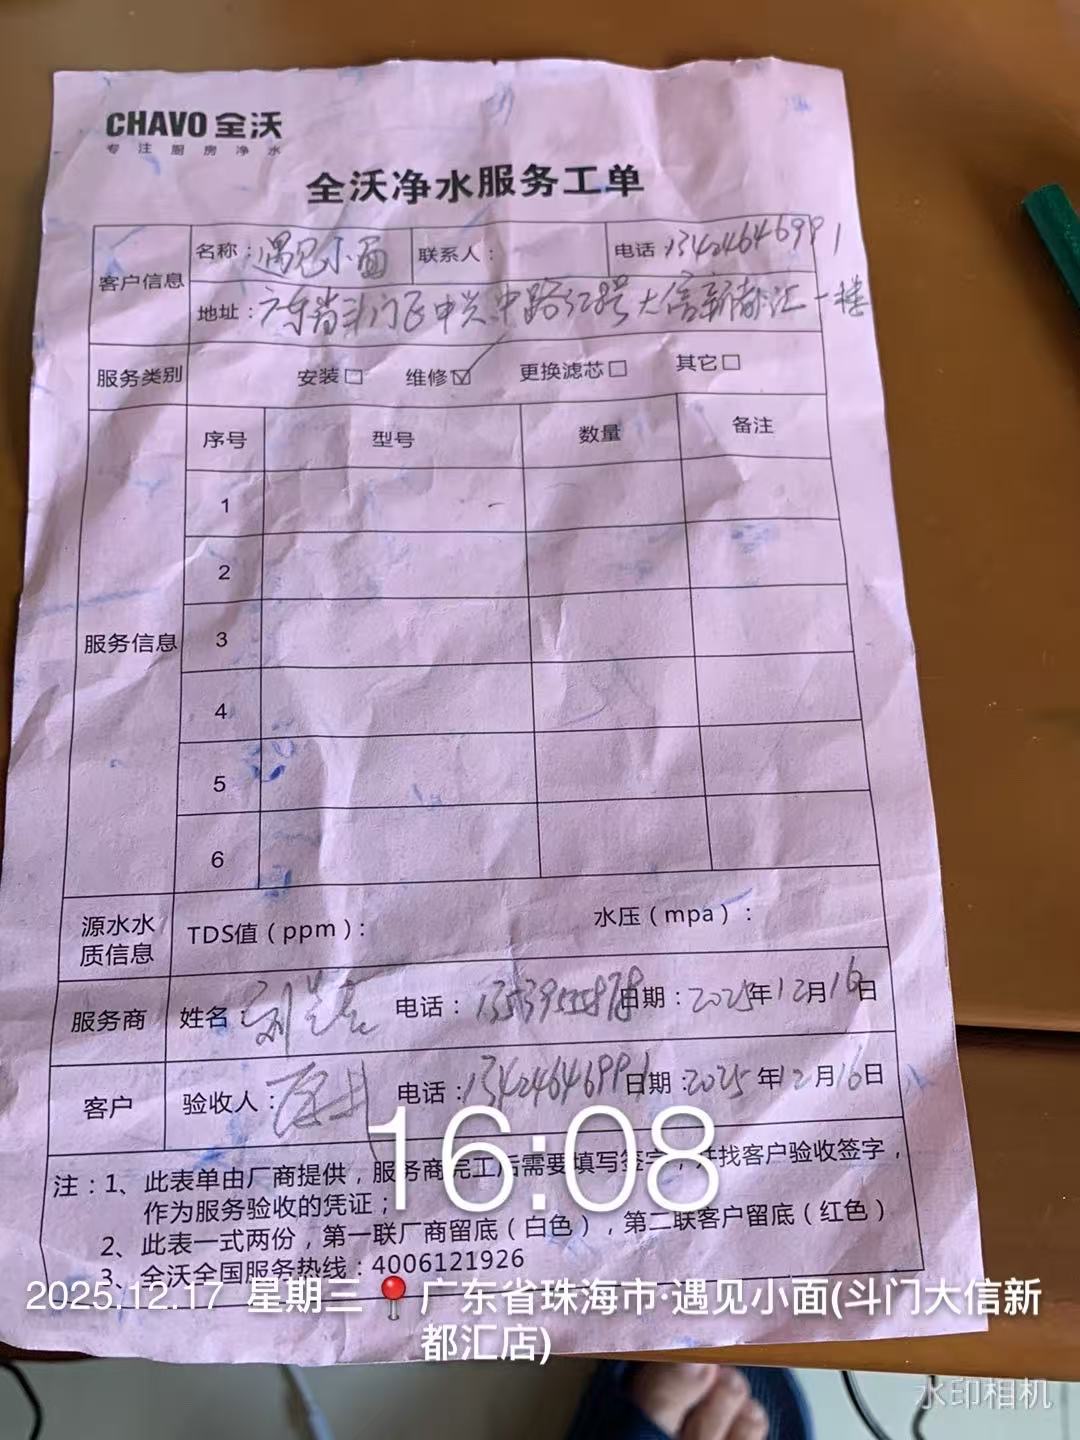 CHAVO 全沃
专注厨房净水
全沃净水服务工单
客户信息 名称：遇见小面 联系人： 电话 13424646991
地址：广东省斗门区中兴中路328号大信新都汇一楼
服务类别 安装□ 维修☑ 更换滤芯□ 其它□
服务信息 序号 型号 数量 备注
1
2
3
4
5
6
源水水质信息 TDS值（ppm）： 水压（mpa）：
服务商 姓名： 电话： 日期：2025年12月16日
客户 验收人： 电话：13424646991 日期：2025年12月16日
注：1、此表单由厂商提供，服务商完工后需要填写签字，并找客户验收签字，
作为服务验收的凭证；
2、此表一式两份，第一联厂商留底（白色），第二联客户留底（红色）
3、全沃全国服务热线：4006121926
16:08
2025.12.17 星期三 广东省珠海市·遇见小面(斗门大信新
都汇店)
水印相机